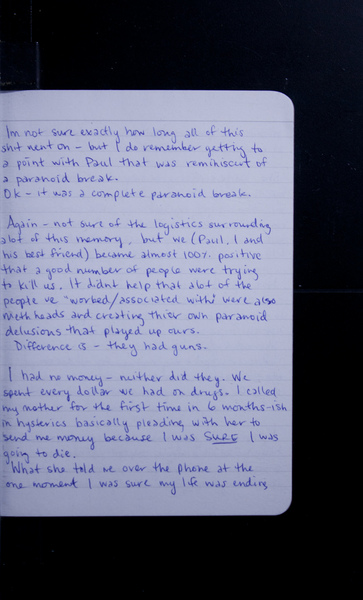 Im not sure exactly how long all of this
shit went on - but I do remember getting to
a point with Paul that was reminiscent of
a paranoid break.
Ok - it was a complete paranoid break.
Again - not sure of the logistics surrounding
alot of this memory, but we (Paul, I and
his best friend) became almost 100% positive
that a good number of people were trying
to kill us. It didnt help that alot of the
people we "worked/associated with" were also
meth heads and creating thier own paranoid
delusions that played up ours.
Difference is - they had guns.
I had no money - neither did they. We
spent every dollar we had on drugs. I called
my mother for the first time in 6 months-ish
in hysterics basically pleading with her to
send me money because I was SURE I was
going to die.
What she told me over the phone at the
one moment I was sure my life was ending